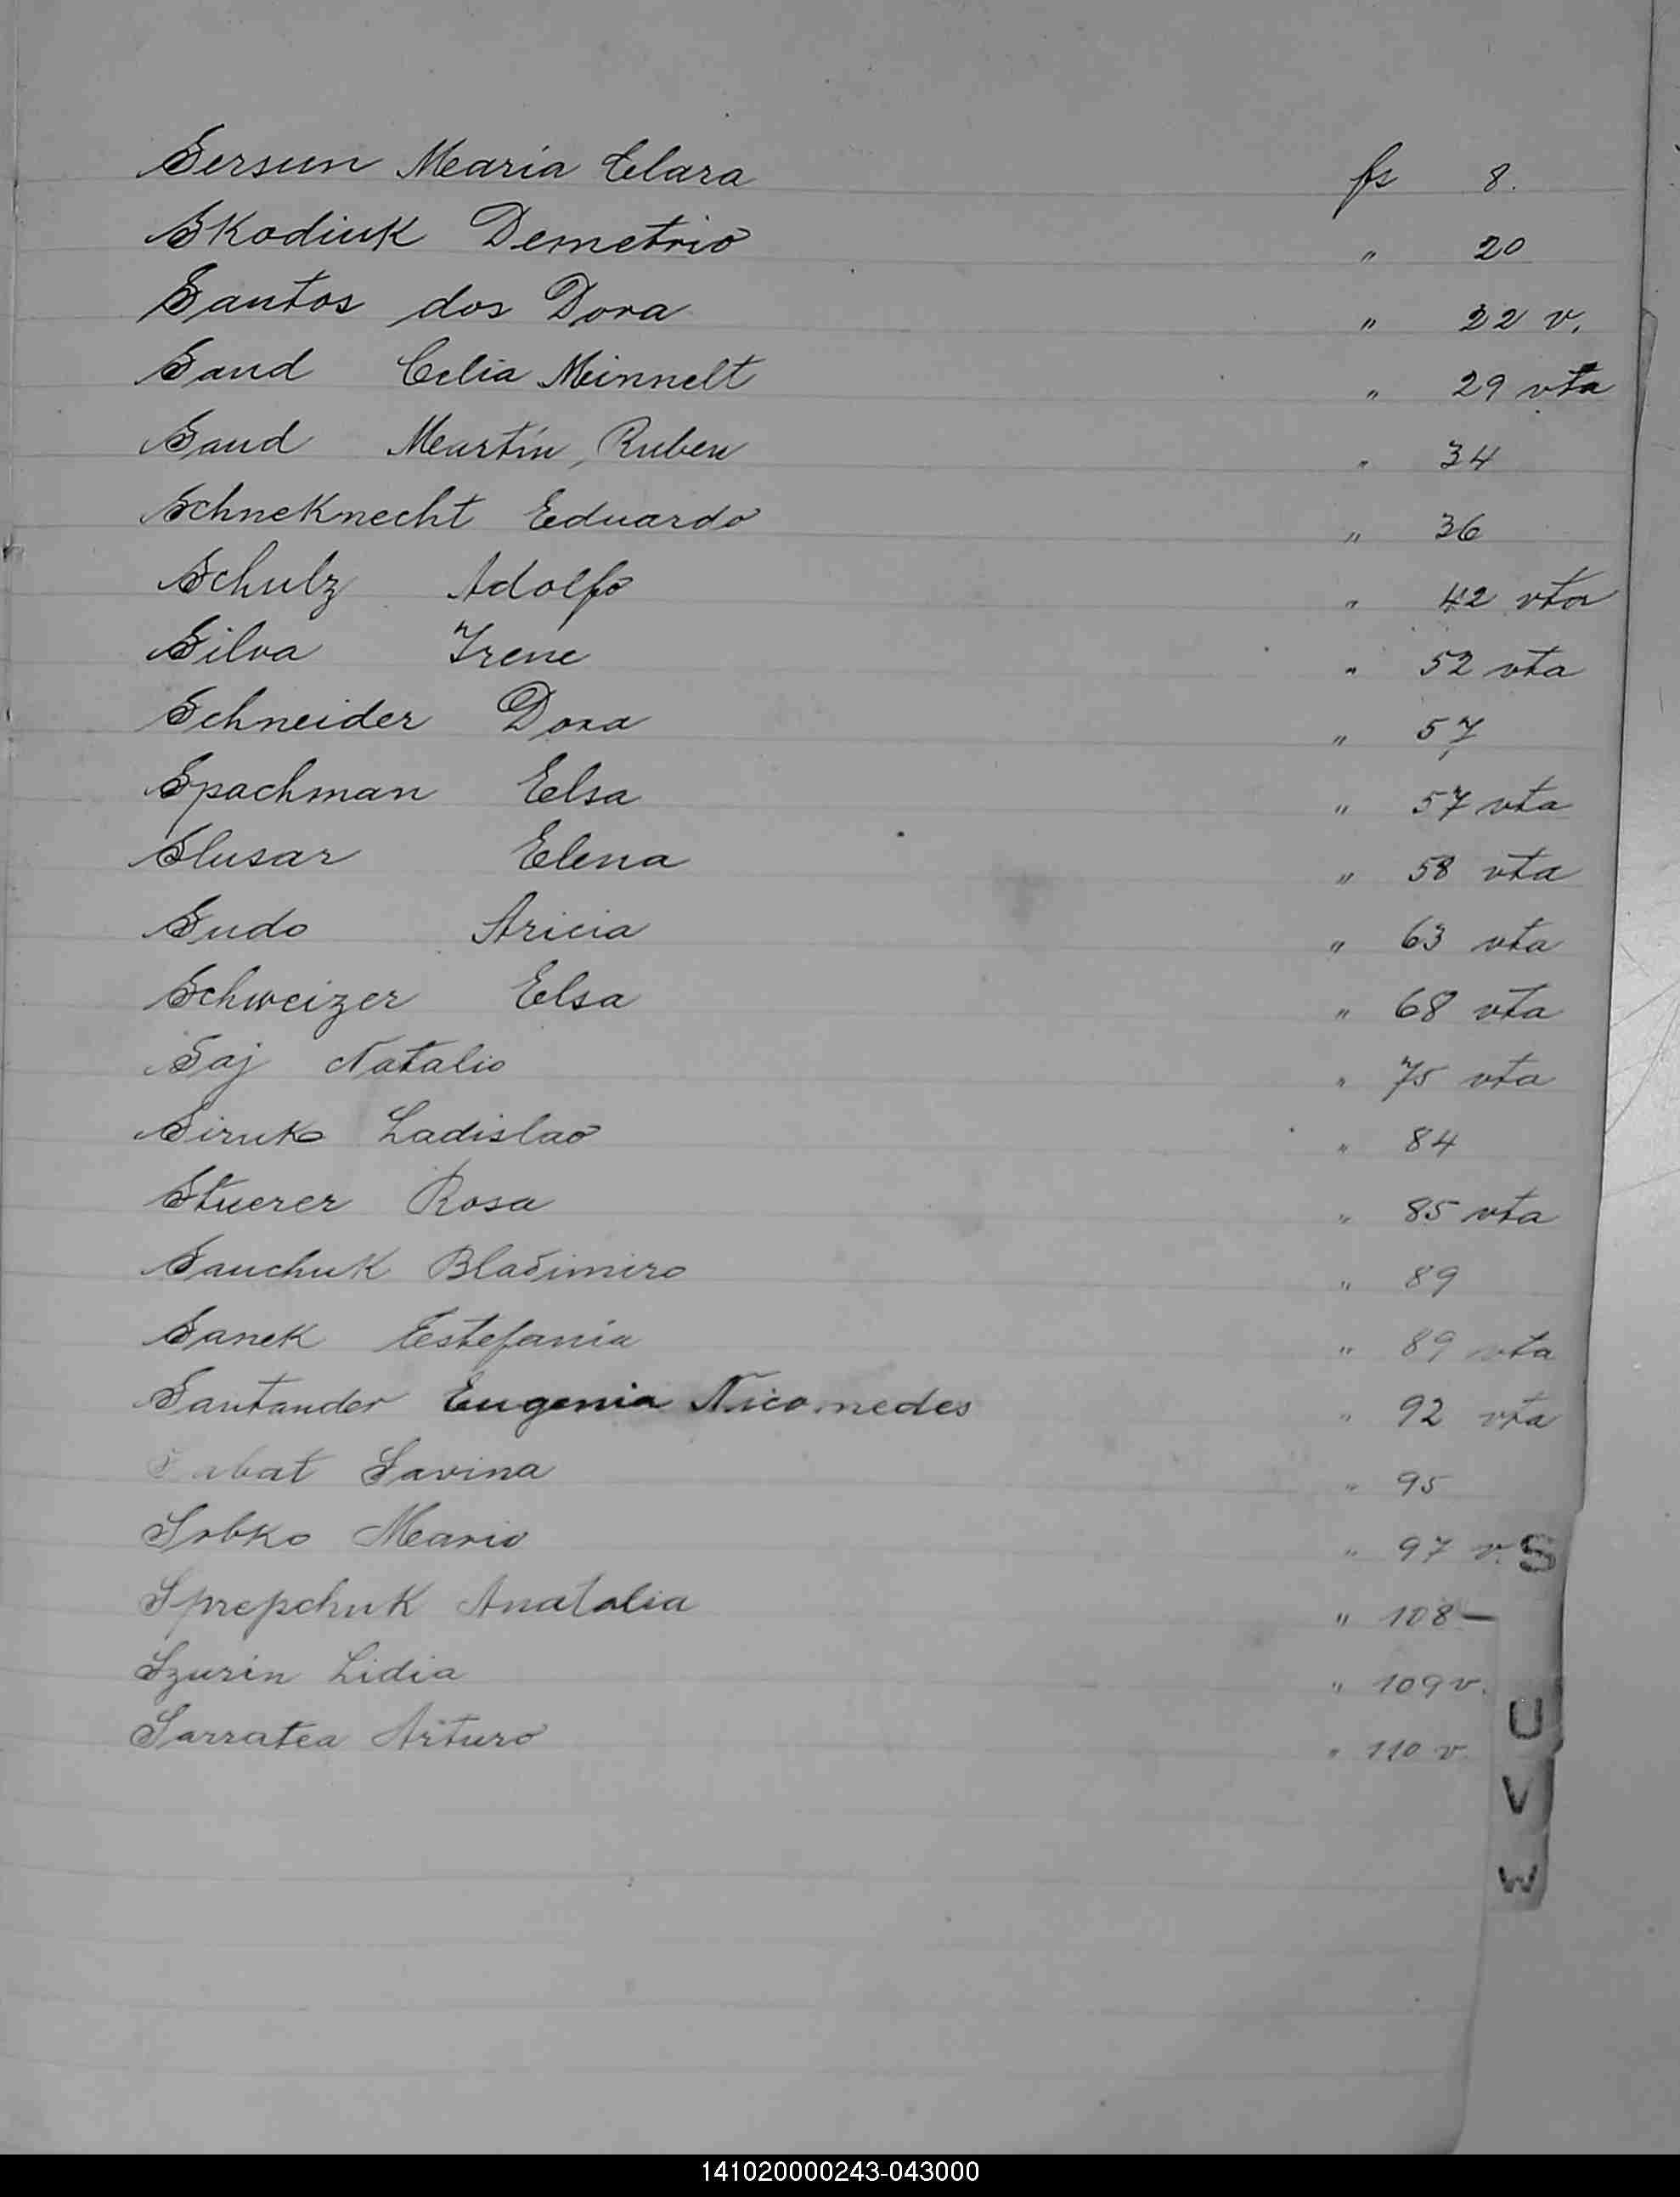 Sersun Maria Clara fs 8.
Skodiuk Demetrio " 20
Santos dos Dora " 22 v.
Sand Celia Minnelt " 29 vta
Sand Martín, Ruben " 34
Schneknecht Eduardo " 36
Schulz Adolfo " 42 vta
Silva Irene " 52 vta
Schneider Dora " 57
Spachman Elsa " 57 vta
Slusar Elena " 58 vta
Sudo Aricia " 63 vta
Schweizer Elsa " 68 vta
Saj Natalio " 75 vta
Siruk Ladislao " 84
Stuerer Rosa " 85 vta
Sauchuk Bladimiro " 89
Sanek Estefania " 89 vta
Santander Eugenia Nicomedes " 92 vta
Sabat Savina " 95
Sobko Mario " 97 v.
S
Sprepchuk Anatalia " 108 —
Szurin Lidia " 109 v.
U
Sarratea Arturo " 110 v.
V
W
141020000243-043000